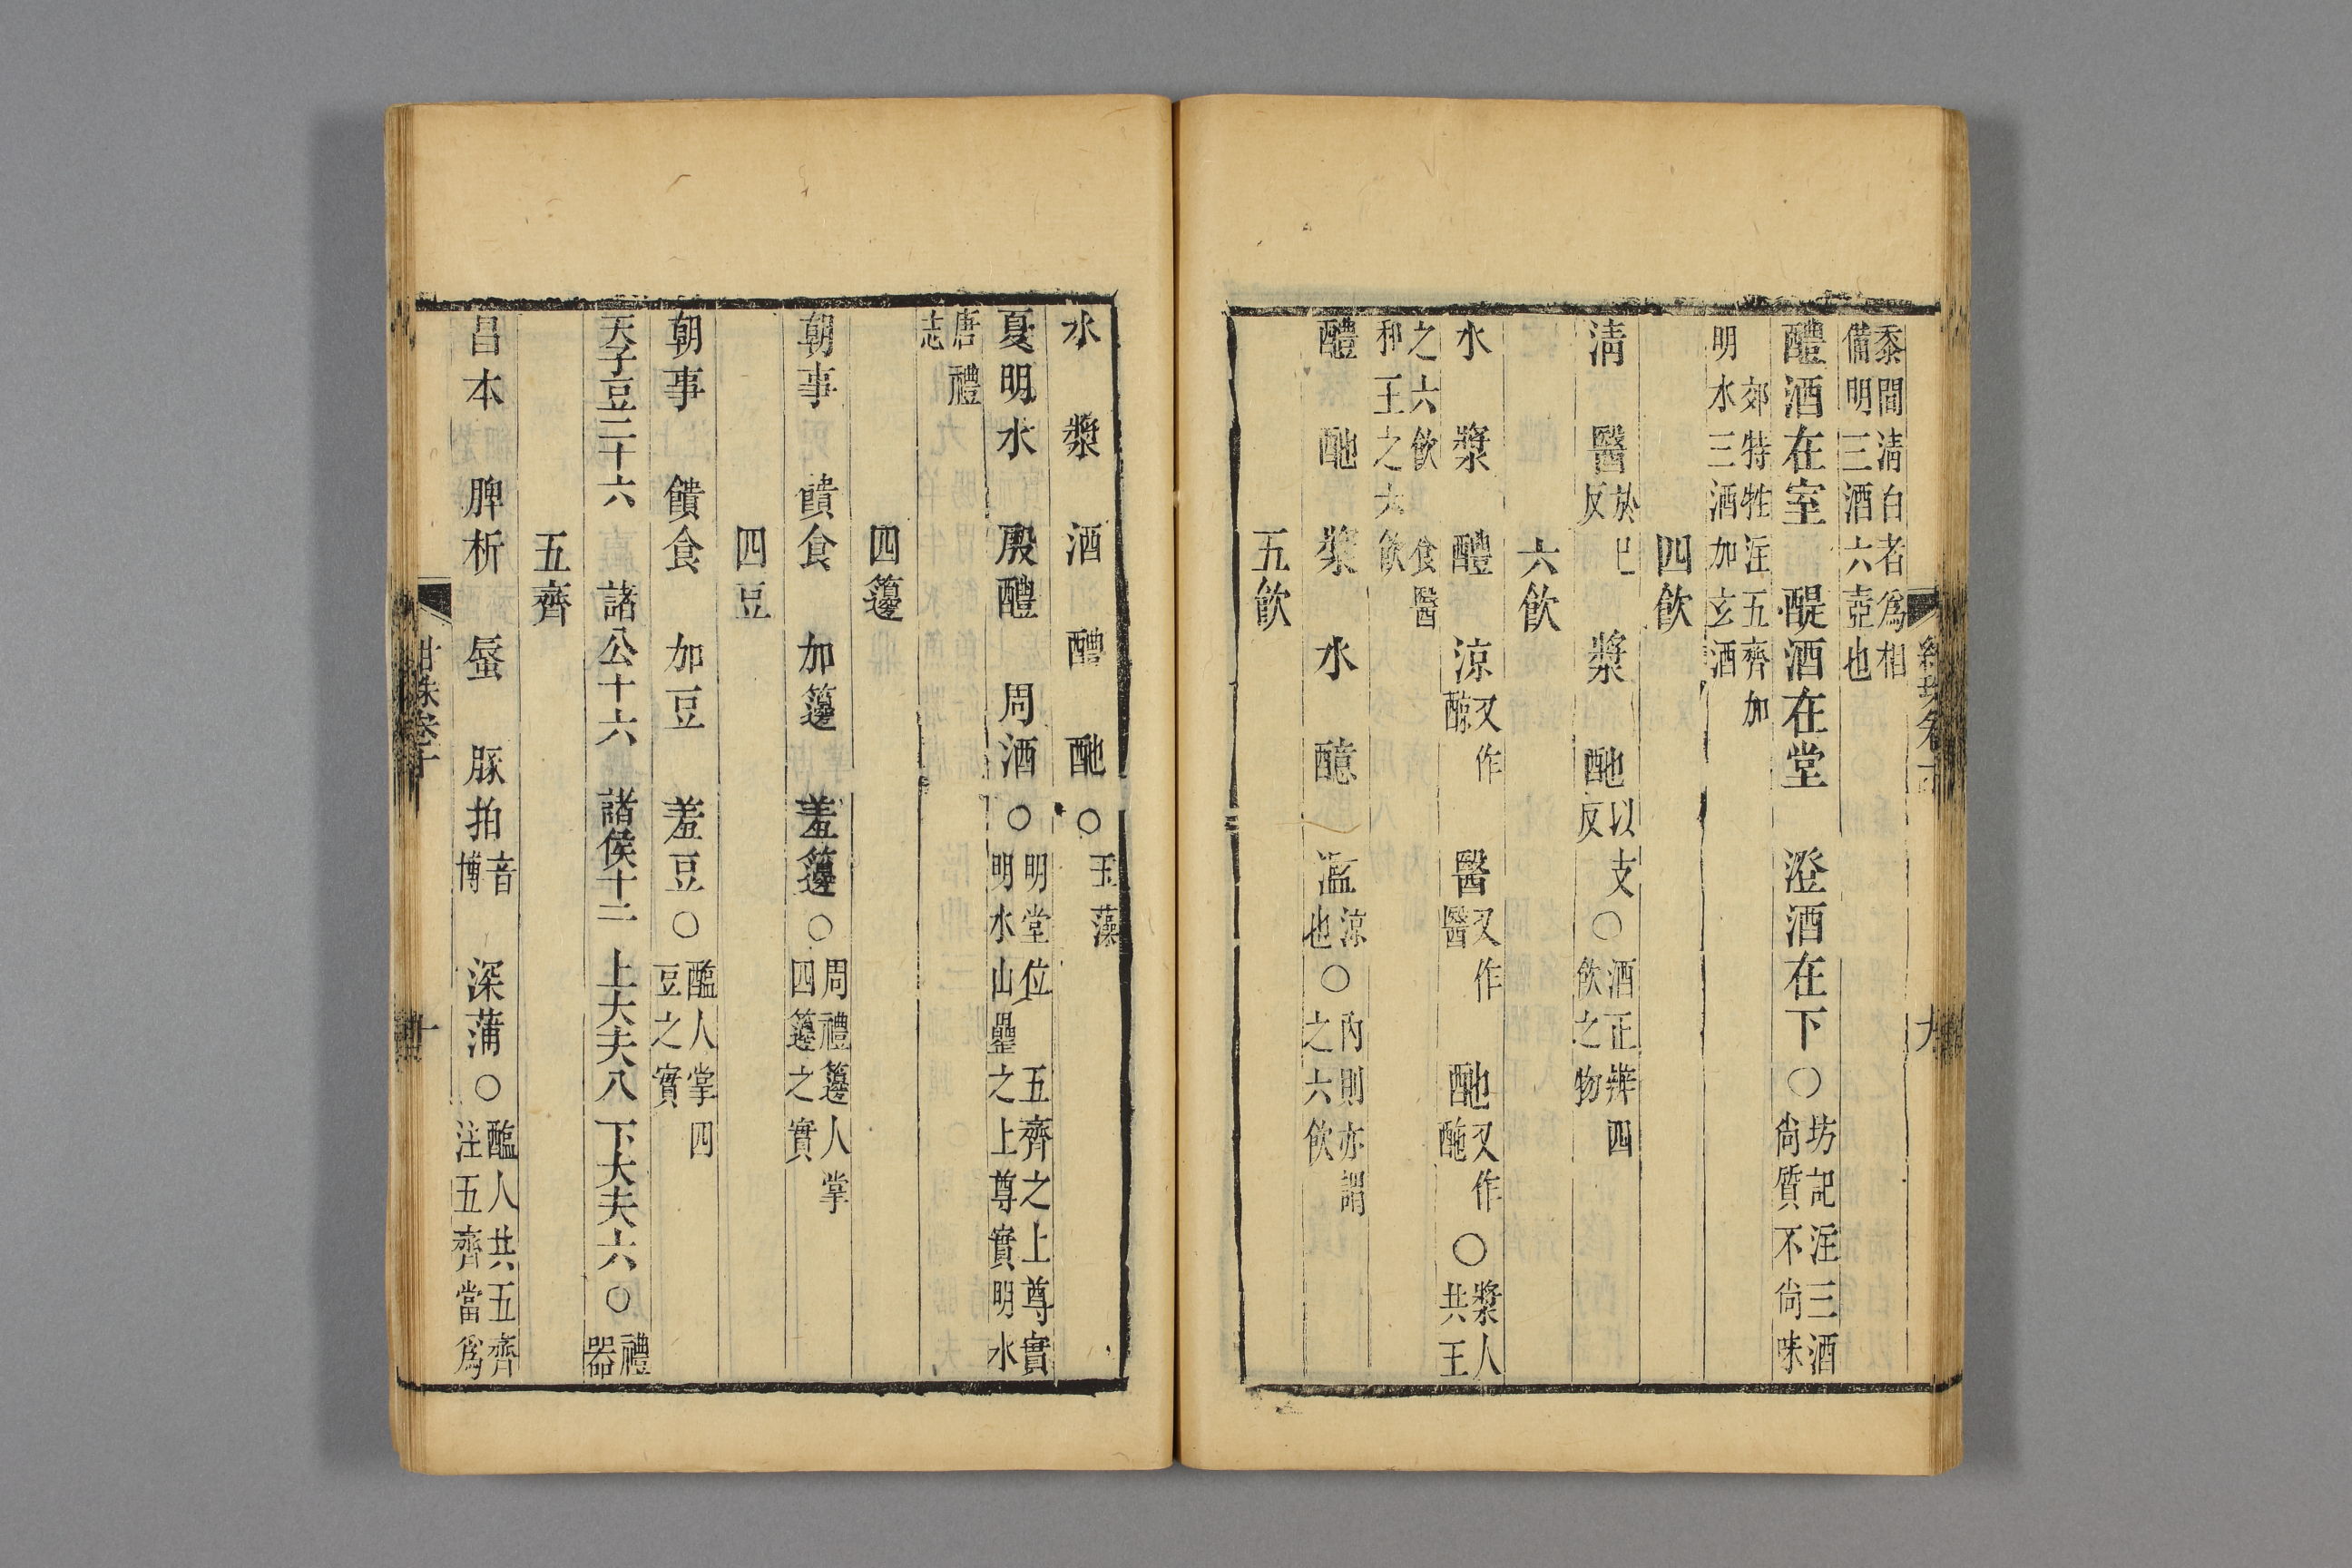 黍間清白者爲相
備明三酒六壺也
醴酒在室　醍酒在堂　澄酒在下○坊記注三酒
尚質不尚味
郊特牲注五齊加
明水三酒加玄酒
四飲
清　醫於巳反　漿　酏以支反○酒正辨四
飲之物
六飲
水　漿　醴　涼又作䣼　醫又作醫　酏又作䣭○漿人
共王
之六飲　食醫
和王之六飲
醴　酏　漿　水　醷　濫涼也○內則亦謂
之六飲
五飲
水　漿　酒　醴　酏○玉藻
夏明水　殷醴　周酒○明堂位　五齊之上尊實
明水山罍之上尊實明水
唐禮
志
四籩
朝事　饋食　加籩　羞籩○周禮籩人掌
四籩之實
四豆
朝事　饋食　加豆　羞豆○醢人掌四
豆之實
天子豆二十六　諸公十六　諸侯十二　上大夫八　下大夫六○禮
器
五齊
昌本　脾析　蜃　豚拍音博　深蒲○醢人共五齊
注五齊當爲